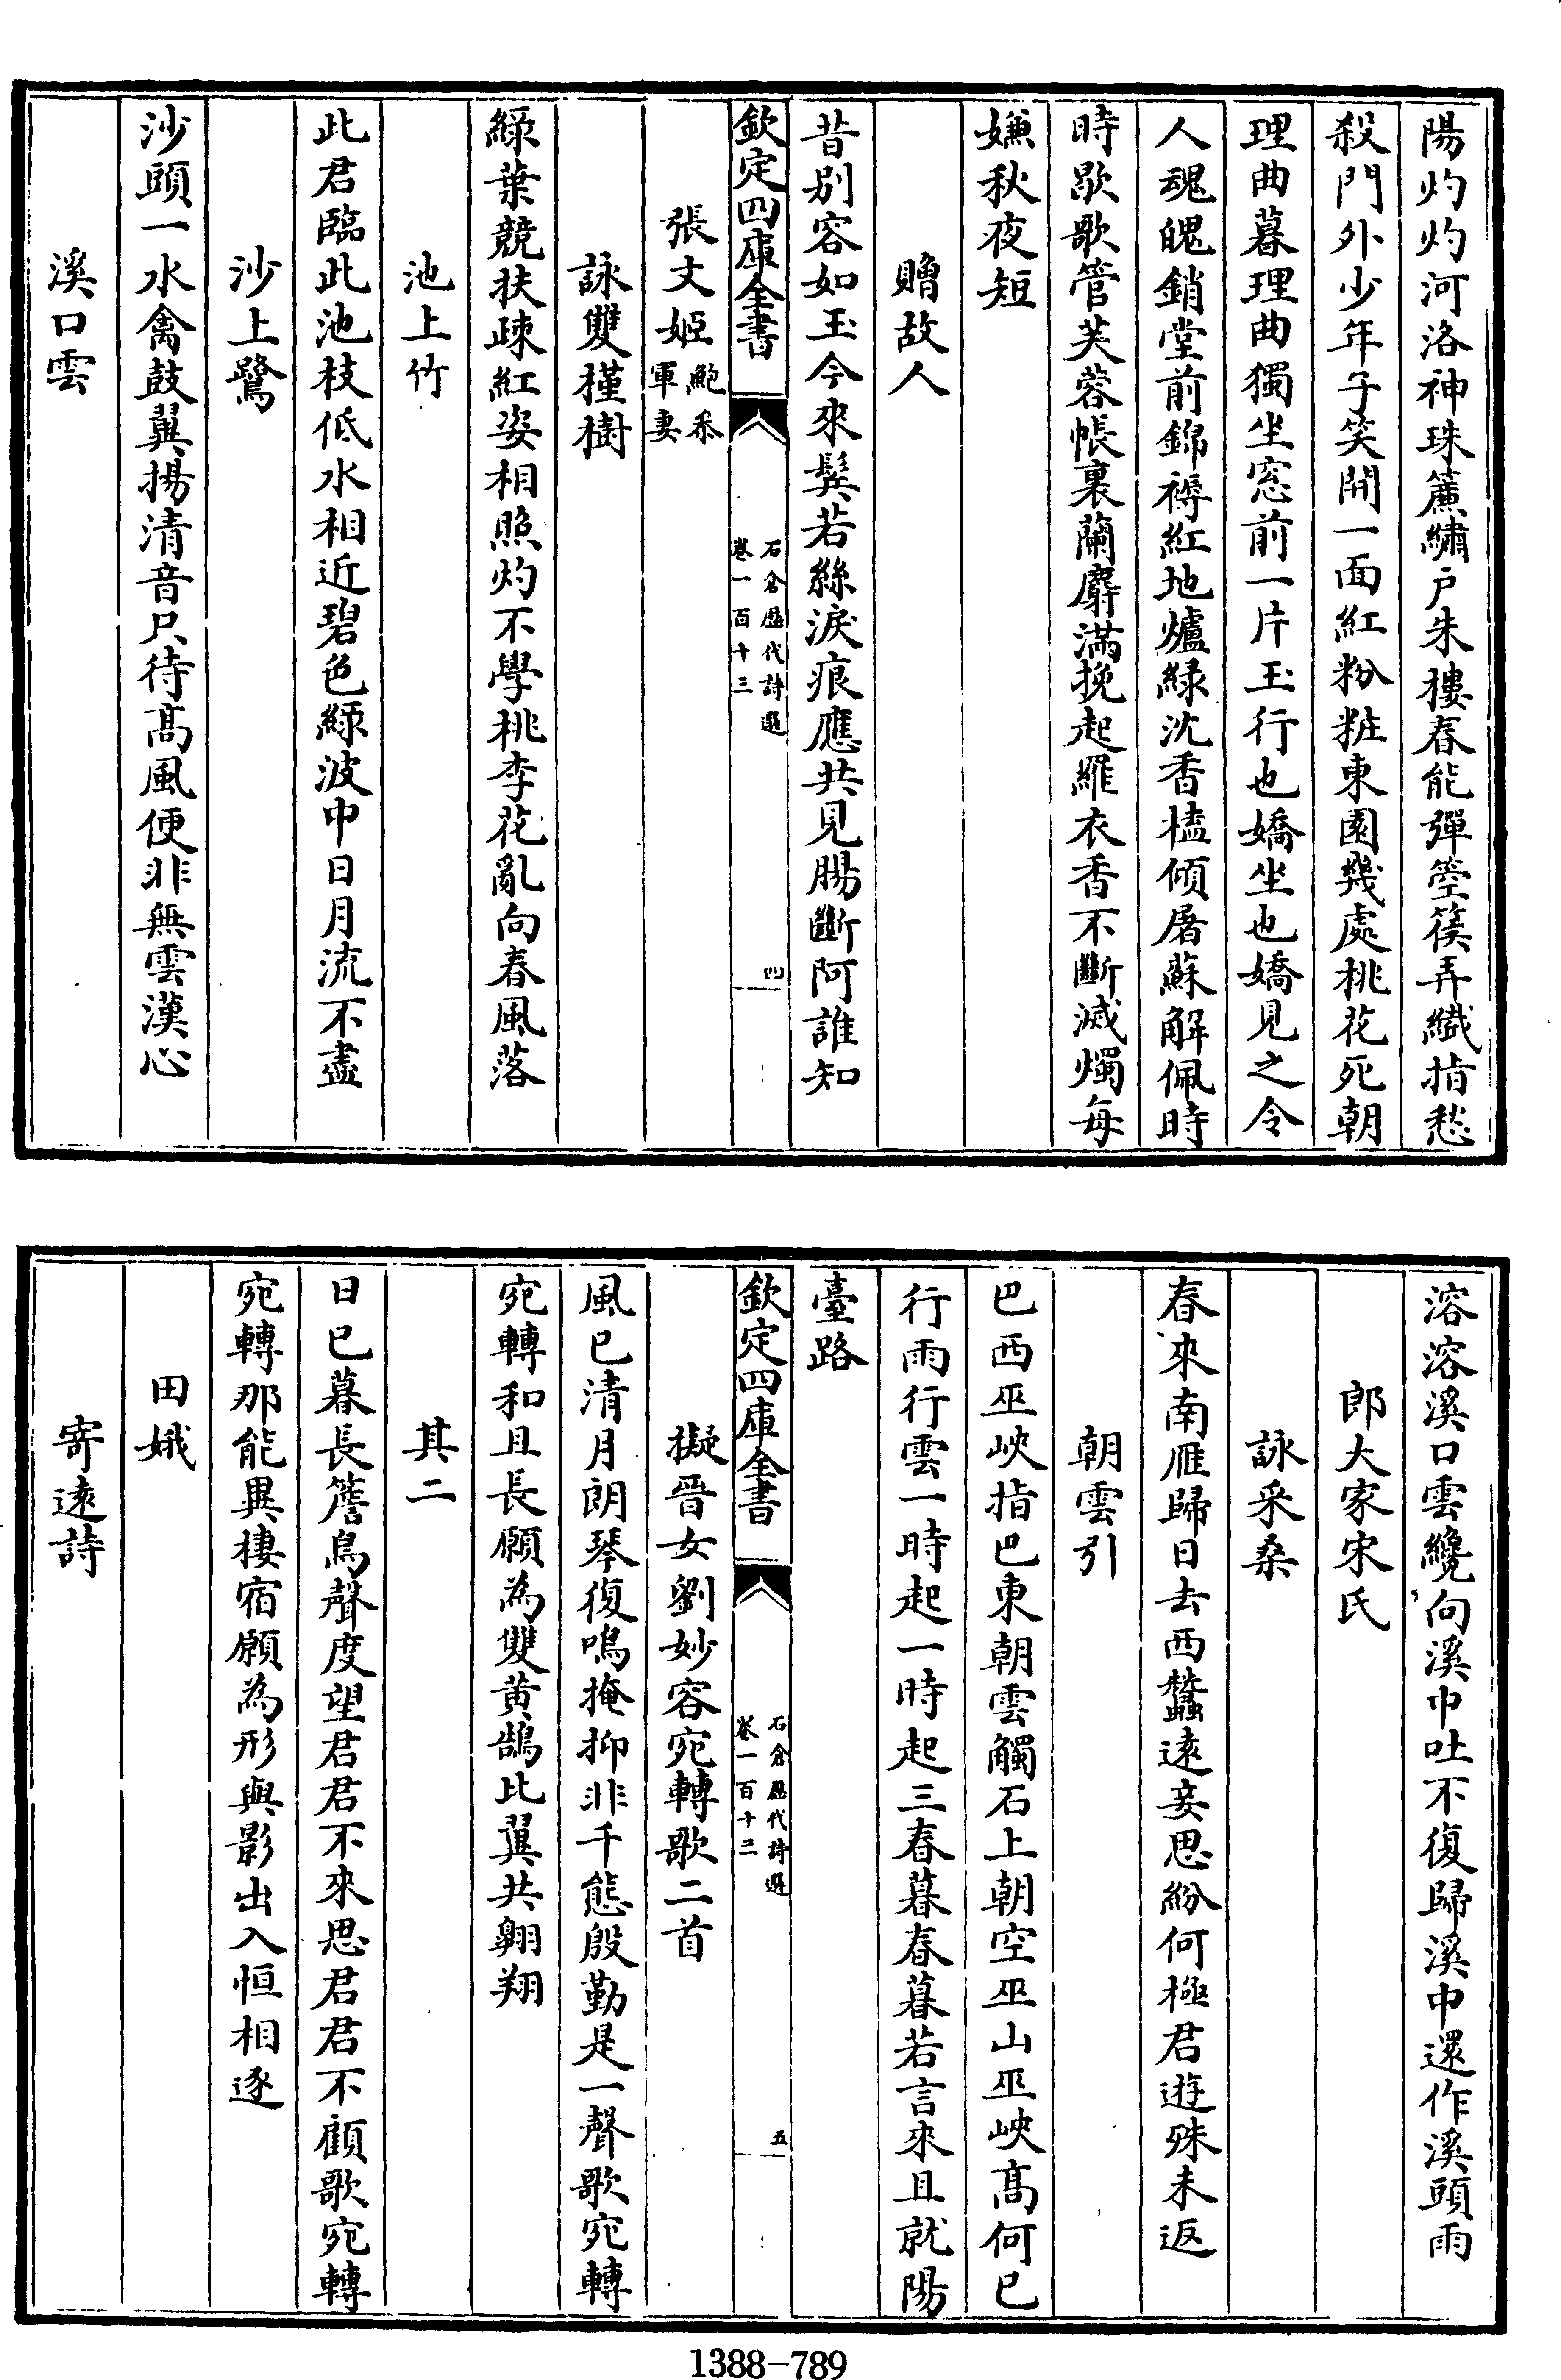 陽灼灼河洛神珠簾繡户朱樓春能彈箜篌弄纎指愁
殺門外少年子笑開一面紅粉粧東園幾處桃花死朝
理曲暮理曲獨坐窓前一片玉行也嬌坐也嬌見之令
人魂魄銷堂前錦褥紅地爐緑沈香榼傾屠蘇解佩時
時歇歌管芙蓉帳裏蘭麝滿挽起羅衣香不斷滅燭每
嫌秋夜短
贈故人
昔别容如玉今來鬂若絲淚痕應共見腸斷阿誰知
欽定四庫全書
石倉歷代詩選
卷一百十三
四
張文姬鮑叅
軍妻
詠雙槿樹
緑葉競扶疎紅姿相照灼不學桃李花亂向春風落
池上竹
此君臨此池枝低水相近碧色緑波中日月流不盡
沙上鷺
沙頭一水禽鼓翼揚清音只待髙風便非無雲漢心
溪口雲
溶溶溪口雲纔向溪中吐不復歸溪中還作溪頭雨
郎大家宋氏
詠采桑
春來南雁歸日去西蠶逺妾思紛何極君遊殊未返
朝雲引
巴西巫峽指巴東朝雲觸石上朝空巫山巫峽髙何已
行雨行雲一時起一時起三春暮春暮若言來且就陽
臺路
欽定四庫全書
石倉歷代詩選
卷一百十三
五
擬晉女劉妙容宛轉歌二首
風已清月朗琴復鳴掩抑非千態殷勤是一聲歌宛轉
宛轉和且長願為雙黄鵠比翼共翺翔
其二
日已暮長簷鳥聲度望君君不來思君君不顧歌宛轉
宛轉那能異棲宿願為形與影出入恒相逐
田娥
寄逺詩
1388-789